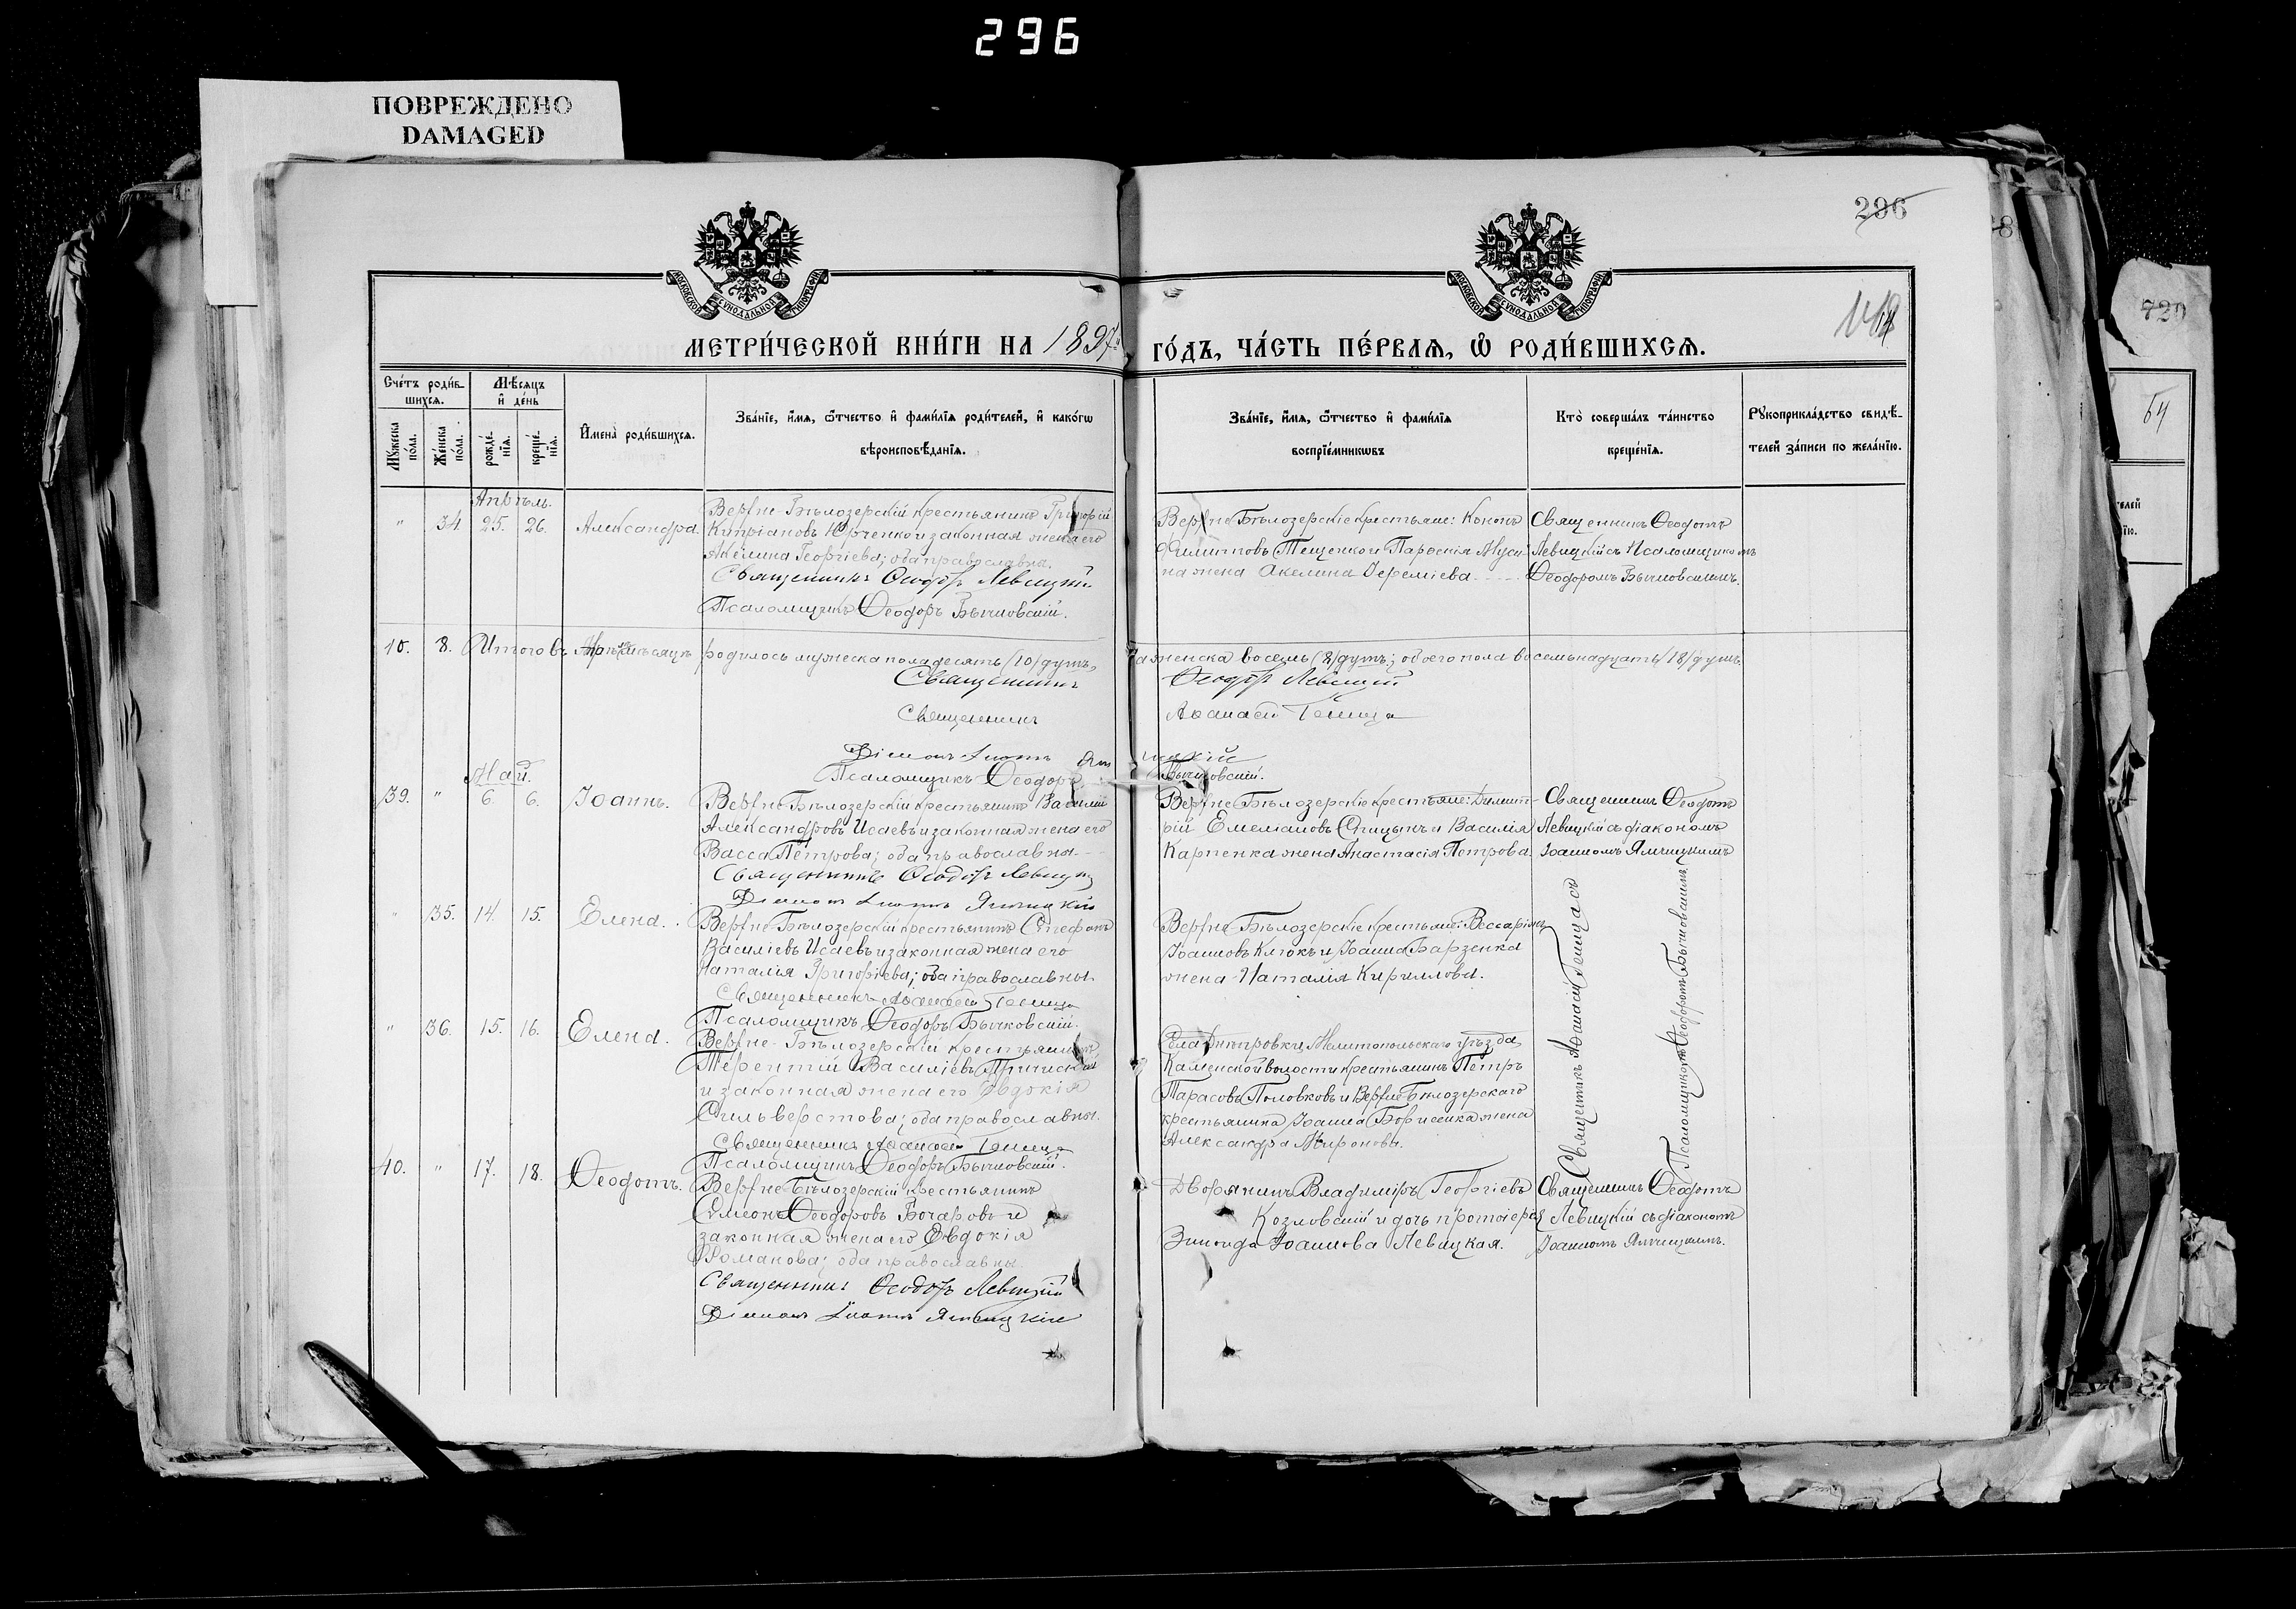 296
ПОВРЕЖДЕНО
DAMAGED
296
720
МОСКОВСКОЙ СѴНОДАЛЬНОЙ ТИПОГРАФІИ
МОСКОВСКОЙ СѴНОДАЛЬНОЙ ТИПОГРАФІИ
МЕТРИ́ЧЕСКОЙ КНИ́ГИ НА 1897й ГО́ДЪ, ЧА́СТЬ ПЕ́РВАЯ, Ѽ РОДИ́ВШИХСЯ.
Сче́тъ роди́в-
шихся.
Мѣ́сяцъ
и҆ де́нь
Мꙋ́жеска по́ла.
Же́нска по́ла.
рожде́-
нія.
креще́-
нія.
И҆мена̀ роди́вшихся.
Зва́ніе, и҆́мя, ѻ҆́тчество и҆ фами́лія роди́телей, и҆ како́гѡ
вѣроисповѣ́данія.
Зва́ніе, и҆́мя, ѻ҆́тчество и҆ фами́лія
воспріе́мникѡвъ
Кто̀ соверша́лъ та́инство
креще́нія.
Рꙋкоприкла́дство свидѣ́-
телей за́писи по жела́нію.
54
Апрѣль.
" 34 25. 26. Александра.
Верхне-Бѣлозерскій крестьянинъ Григорій
Купріановъ Юрченко и законная жена его
Акелина Георгіева; оба православны.
Священникъ Ѳеодотъ Левицкій
Псаломщикъ Ѳеодоръ Бычковскій.
Верхне-Бѣлозерскіе крестьяне: Кононъ
Филипповъ Тещенко и Параскія
на жена Акелина Іереміева
Священникъ Ѳеодотъ
Левицкій съ Псаломщикомъ
Ѳеодоромъ Бычковскимъ.
10. 8. Итого въ Апрѣлѣ мѣсяцѣ родилось мужеска пола десять (10) душъ, а женска восемь (8) душъ; обоего пола восемьнадцать (18) душъ.
Священникъ Ѳеодотъ Левицкій
Священникъ Аѳанасій Геница
Діаконъ Іоаннъ
Псаломщикъ Ѳеодоръ Бычковскій.
Май.
39. " 6. 6. Іоаннъ.
Верхне-Бѣлозерскій крестьянинъ Василій
Александровъ Исаевъ и законная жена его
Васса Петрова; оба православны.
Священникъ Ѳеодотъ Левицкій
Діаконъ Іоаннъ
Верхне-Бѣлозерскіе крестьяне: Димит-
рій Емеліановъ Спицынъ и Василія
Карпенка жена Анастасія Петрова.
Священникъ Ѳеодотъ
Левицкій съ діакономъ
Іоанномъ
" 35. 14. 15. Елена.
Верхне-Бѣлозерскій крестьянинъ Стефанъ
Василіевъ Исаевъ и законная жена его
Наталія Григоріева; оба православны.
Священникъ Аѳанасій Геница
Псаломщикъ Ѳеодоръ Бычковскій.
Верхне-Бѣлозерскіе крестьяне: Виссаріонъ
Іоанновъ Клюкъ и Іоанна Барзенка
жена Наталія Кириллова.
Священникъ Аѳанасій Геница съ
Псаломщикомъ Ѳеодоромъ Бычковскимъ
" 36. 15. 16. Елена.
Верхне-Бѣлозерскій крестьянинъ
Терентій Василіевъ
и законная жена его Евдокія
Сильверстова; оба православны.
Священникъ Аѳанасій Геница
Псаломщикъ Ѳеодоръ Бычковскій.
Села Днѣпровки, Мелитопольскаго уѣзда,
Каменской волости крестьянинъ Петръ
Тарасовъ Половковъ и Верхне-Бѣлозерскаго
крестьянина Іоанна Борисенка жена
Александра Миронова.
40. " 17. 18. Ѳеодотъ.
Верхне-Бѣлозерскій крестьянинъ
Симеонъ Ѳеодоровъ Бочаровъ и
законная жена его Евдокія
Романова; оба православны.
Священникъ Ѳеодотъ Левицкій
Діаконъ Іоаннъ
Дворянинъ Владиміръ Георгіевъ
Козловскій и дочь протоіерея
Зинаида Іоаннова Левицкая.
Священникъ Ѳеодотъ
Левицкій съ діакономъ
Іоанномъ